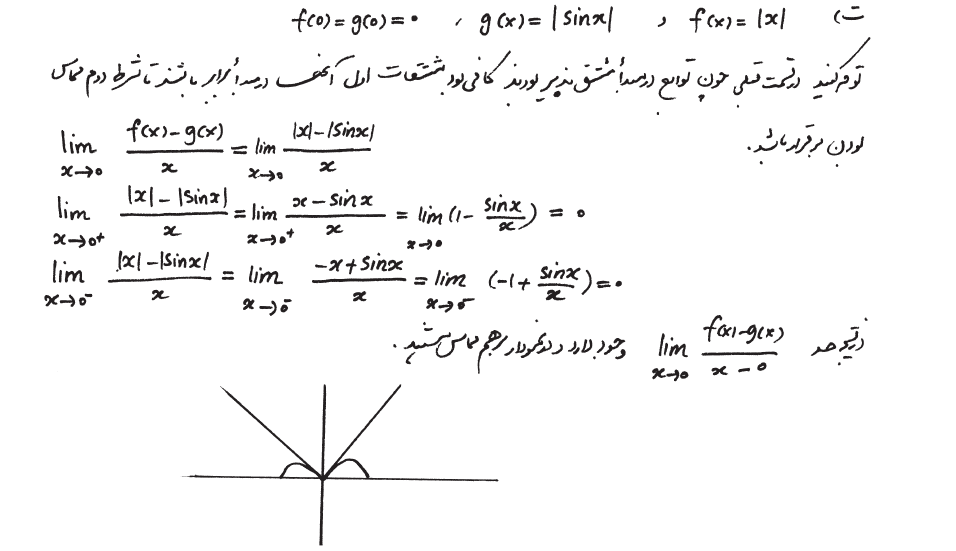 ت) f(x) = |x| و g(x) = |sinx| ، f(0) = g(0) = 0
توجه کنید در قسمت قبلی چون توابع در مبدأ مشتق پذیر بودند کافی بود مشتقات اول آنها در مبدأ برابر باشند تا شرط دوم مماس
بودن برقرار باشد.
lim x→0 (f(x)-g(x))/x = lim x→0 (|x|-|sinx|)/x
lim x→0+ (|x|-|sinx|)/x = lim x→0+ (x-sinx)/x = lim x→0 (1- sinx/x) = 0
lim x→0- (|x|-|sinx|)/x = lim x→0- (-x+sinx)/x = lim x→0- (-1+ sinx/x) = 0
در نتیجه حد lim x→0 (f(x)-g(x))/(x-0) وجود دارد و دو نمودار بر هم مماس هستند.